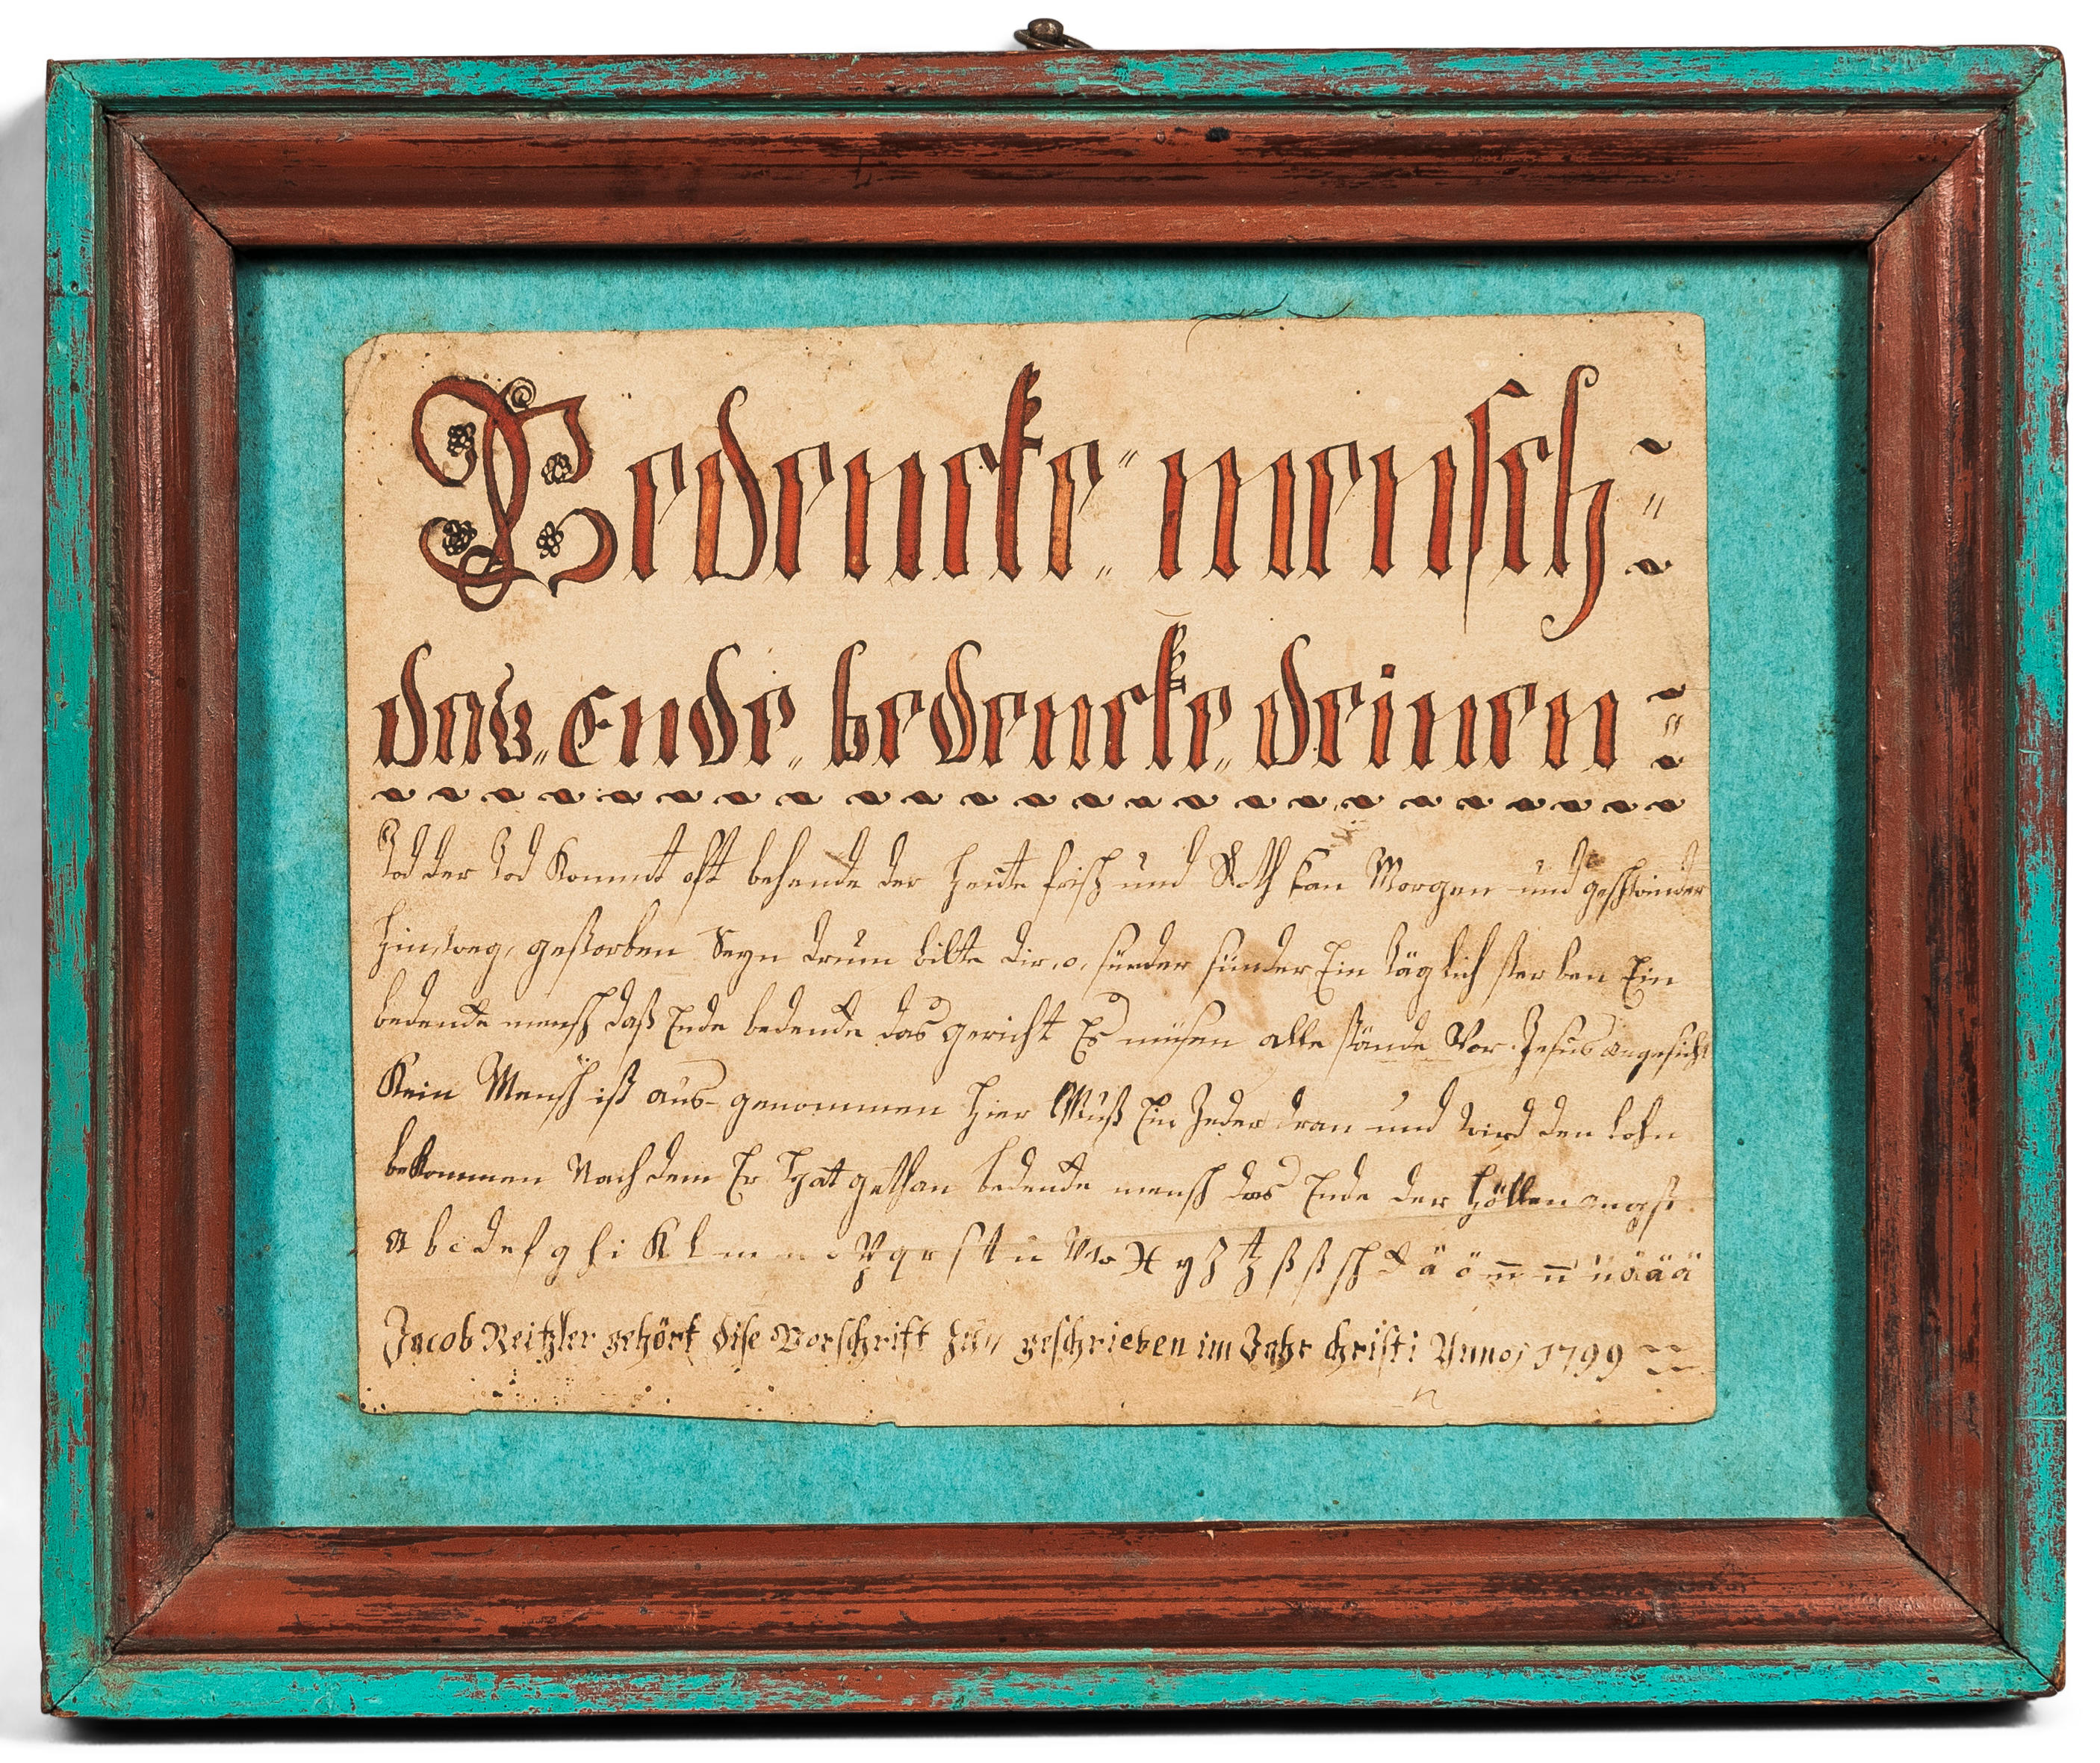 Bedencke mensch
das Ende bedencke deinen
Tod der Tod kommt oft behende der heute frisch und Roth kan Morgen und geschwinder
hinweg gestorben seyn drum bilte dir, o, sünder sünder Ein täglich sterben Ein
bedencke mensch daß Ende bedencke das gericht Es müsen alle stände Vor Jesus angesicht
Kein Mensch ist aus-genommen hier Muß Ein Jeder dran und wird den lohn
bekommen Nach dem Er hat gethan bedencke mensch das Ende der höllen angst
a b c d e f g h i K l m n o p q r s t u v w x y z tz ß ß sch ck ä ö m̅ n̅ ü ä ä ä
Jacob Reitzler gehört dise Vorschrift zu geschrieben im Jahr christi Anno 1799